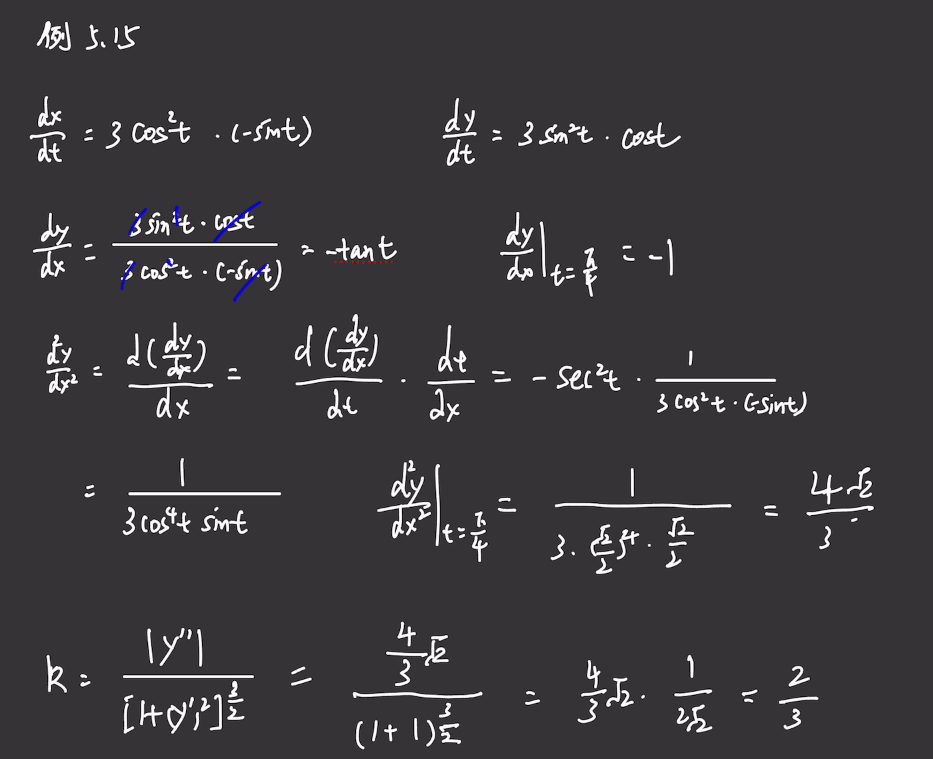 例 5.15
dx/dt = 3 cos²t · (-sint)    dy/dt = 3 sin²t · cost
dy/dx = 3 sin²t · cost / 3 cos²t · (-sint) = -tant    dy/dx |t=π/4 = -1
d²y/dx² = d(dy/dx)/dx = d(dy/dx)/dt · dt/dx = - sec²t · 1/3 cos²t · (-sint)
= 1/3 cos⁴t sint    d²y/dx² |t=π/4 = 1/3 · (√2/2)⁴ · √2/2 = 4√2/3
k = |y''|/[1+(y')²]^3/2 = 4/3 √2/(1+1)^3/2 = 4/3 √2 · 1/2√2 = 2/3